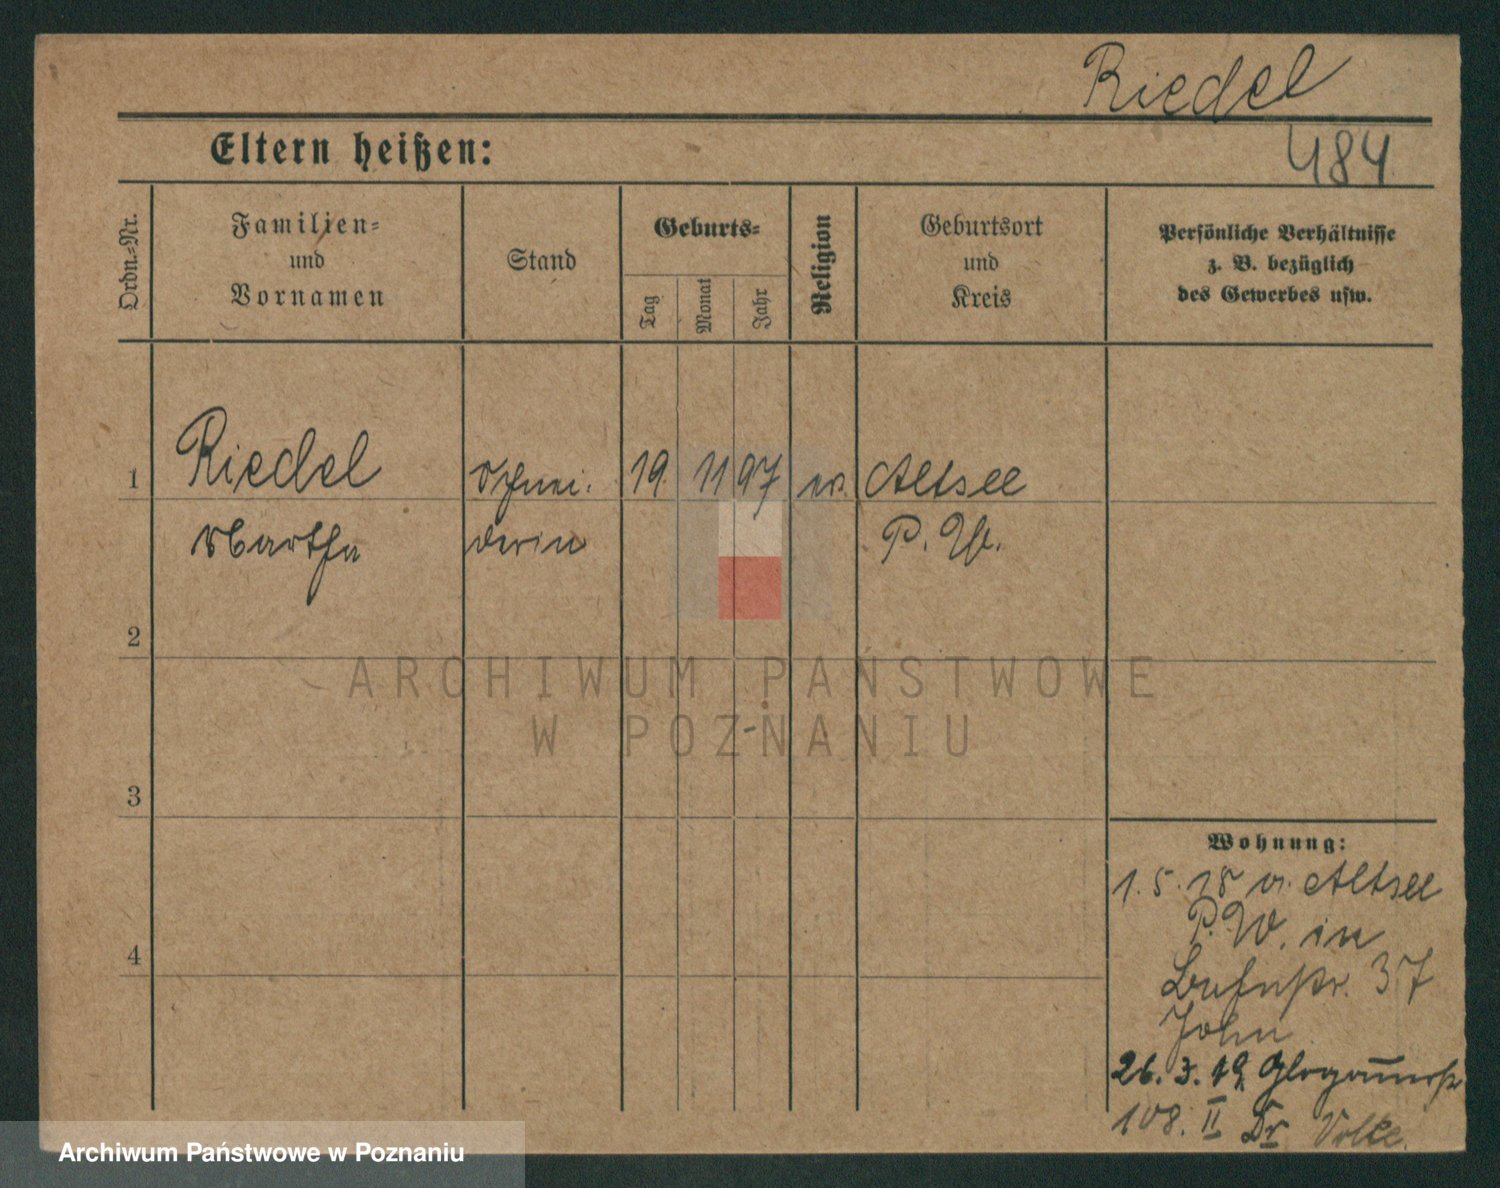 Riedel
484
Eltern heißen:
Ordn.-Nr.
Familien-
und
Vornamen
Stand
Geburts-
Tag
Monat
Jahr
Religion
Geburtsort
und
Kreis
Persönliche Verhältnisse
z. B. bezüglich
des Gewerbes usw.
1
Riedel
Schnei.
19.
11
97
ev.
Altsee
Martha
derin
P. W.
2
ARCHIWUM PAŃSTWOWE
W POZNANIU
3
Wohnung:
1.5.18 v. Altsee
P.W. in
37
John
26.3.19 Glogauerstr
108. II Dr
4
Archiwum Państwowe w Poznaniu